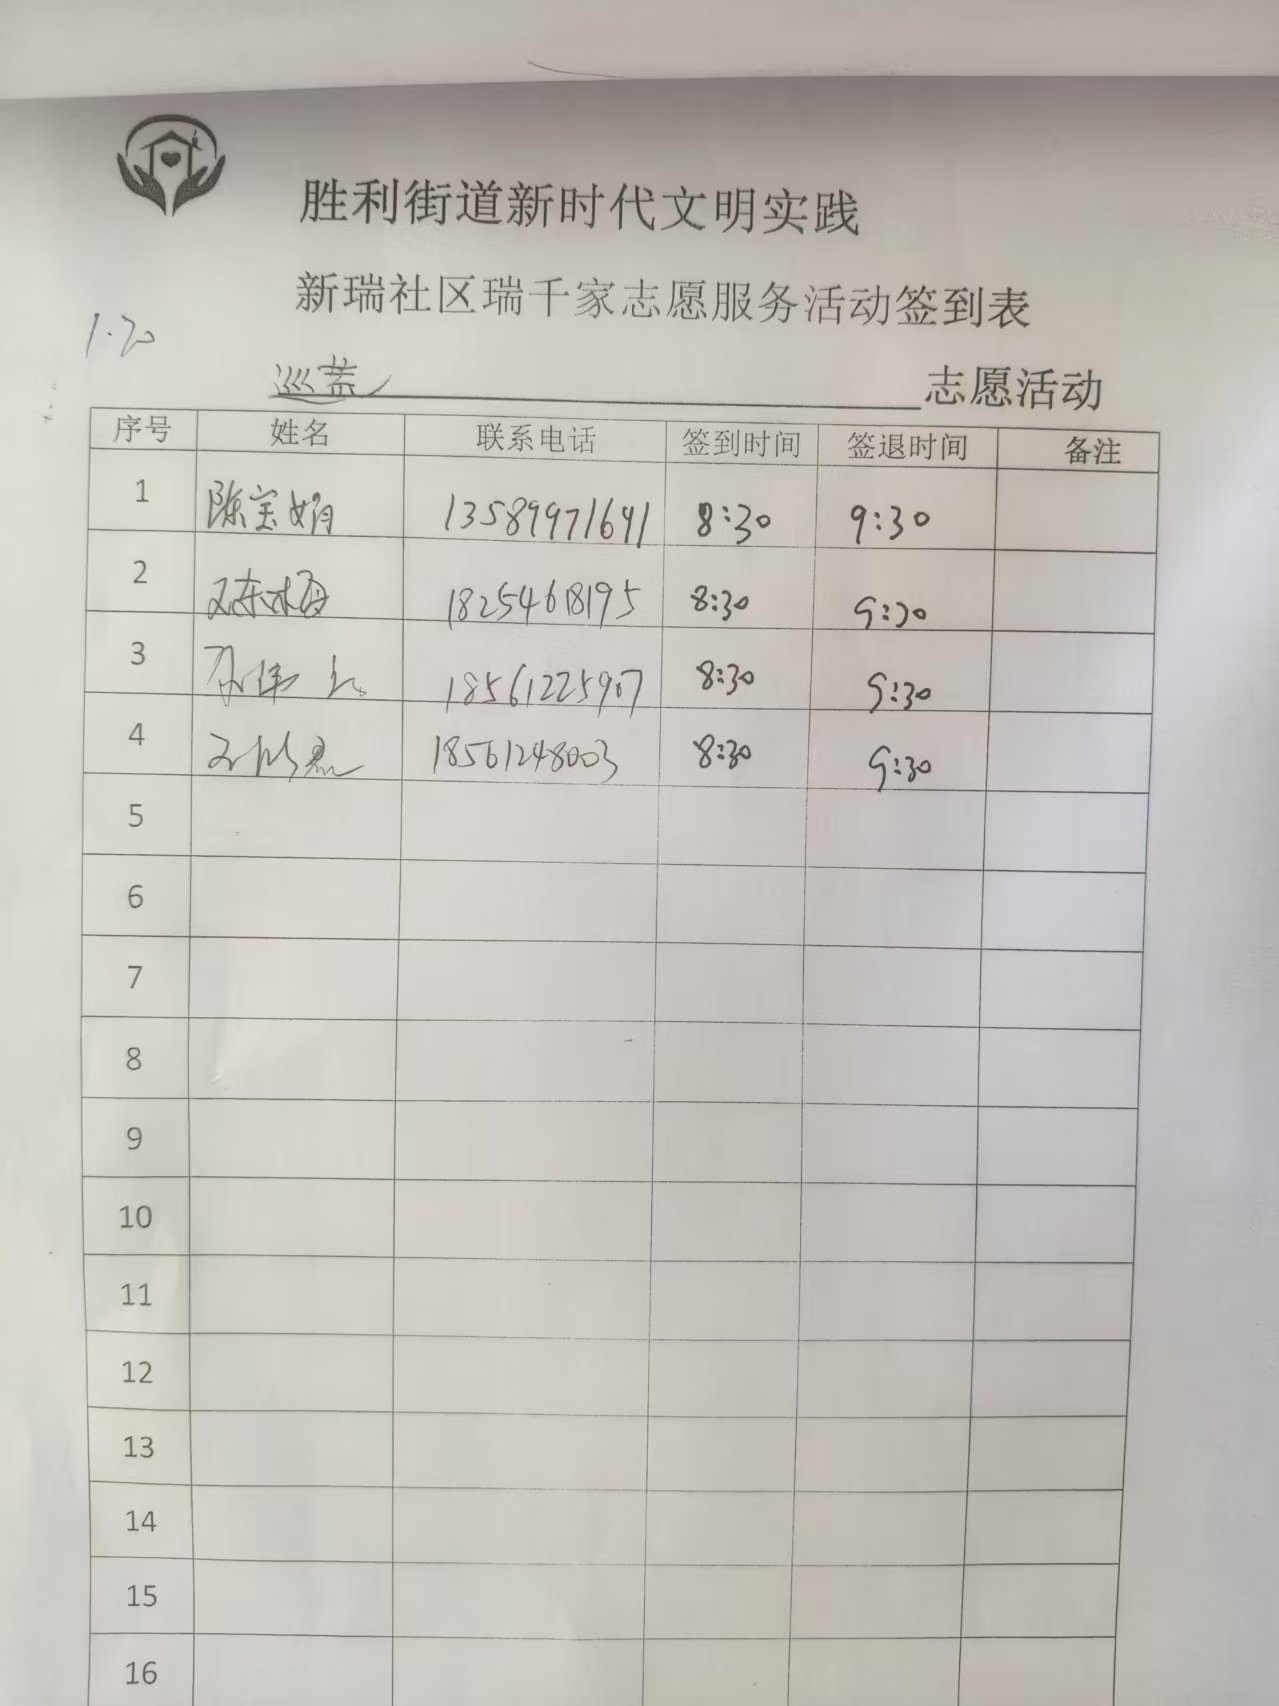 胜利街道新时代文明实践
新瑞社区瑞千家志愿服务活动签到表
1.20
巡盖 志愿活动
序号 姓名 联系电话 签到时间 签退时间 备注
1 陈宝娟 13589971641 8:30 9:30
2 18254618195 8:30 9:30
3 18561225907 8:30 9:30
4 18561248003 8:30 9:30
5
6
7
8
9
10
11
12
13
14
15
16